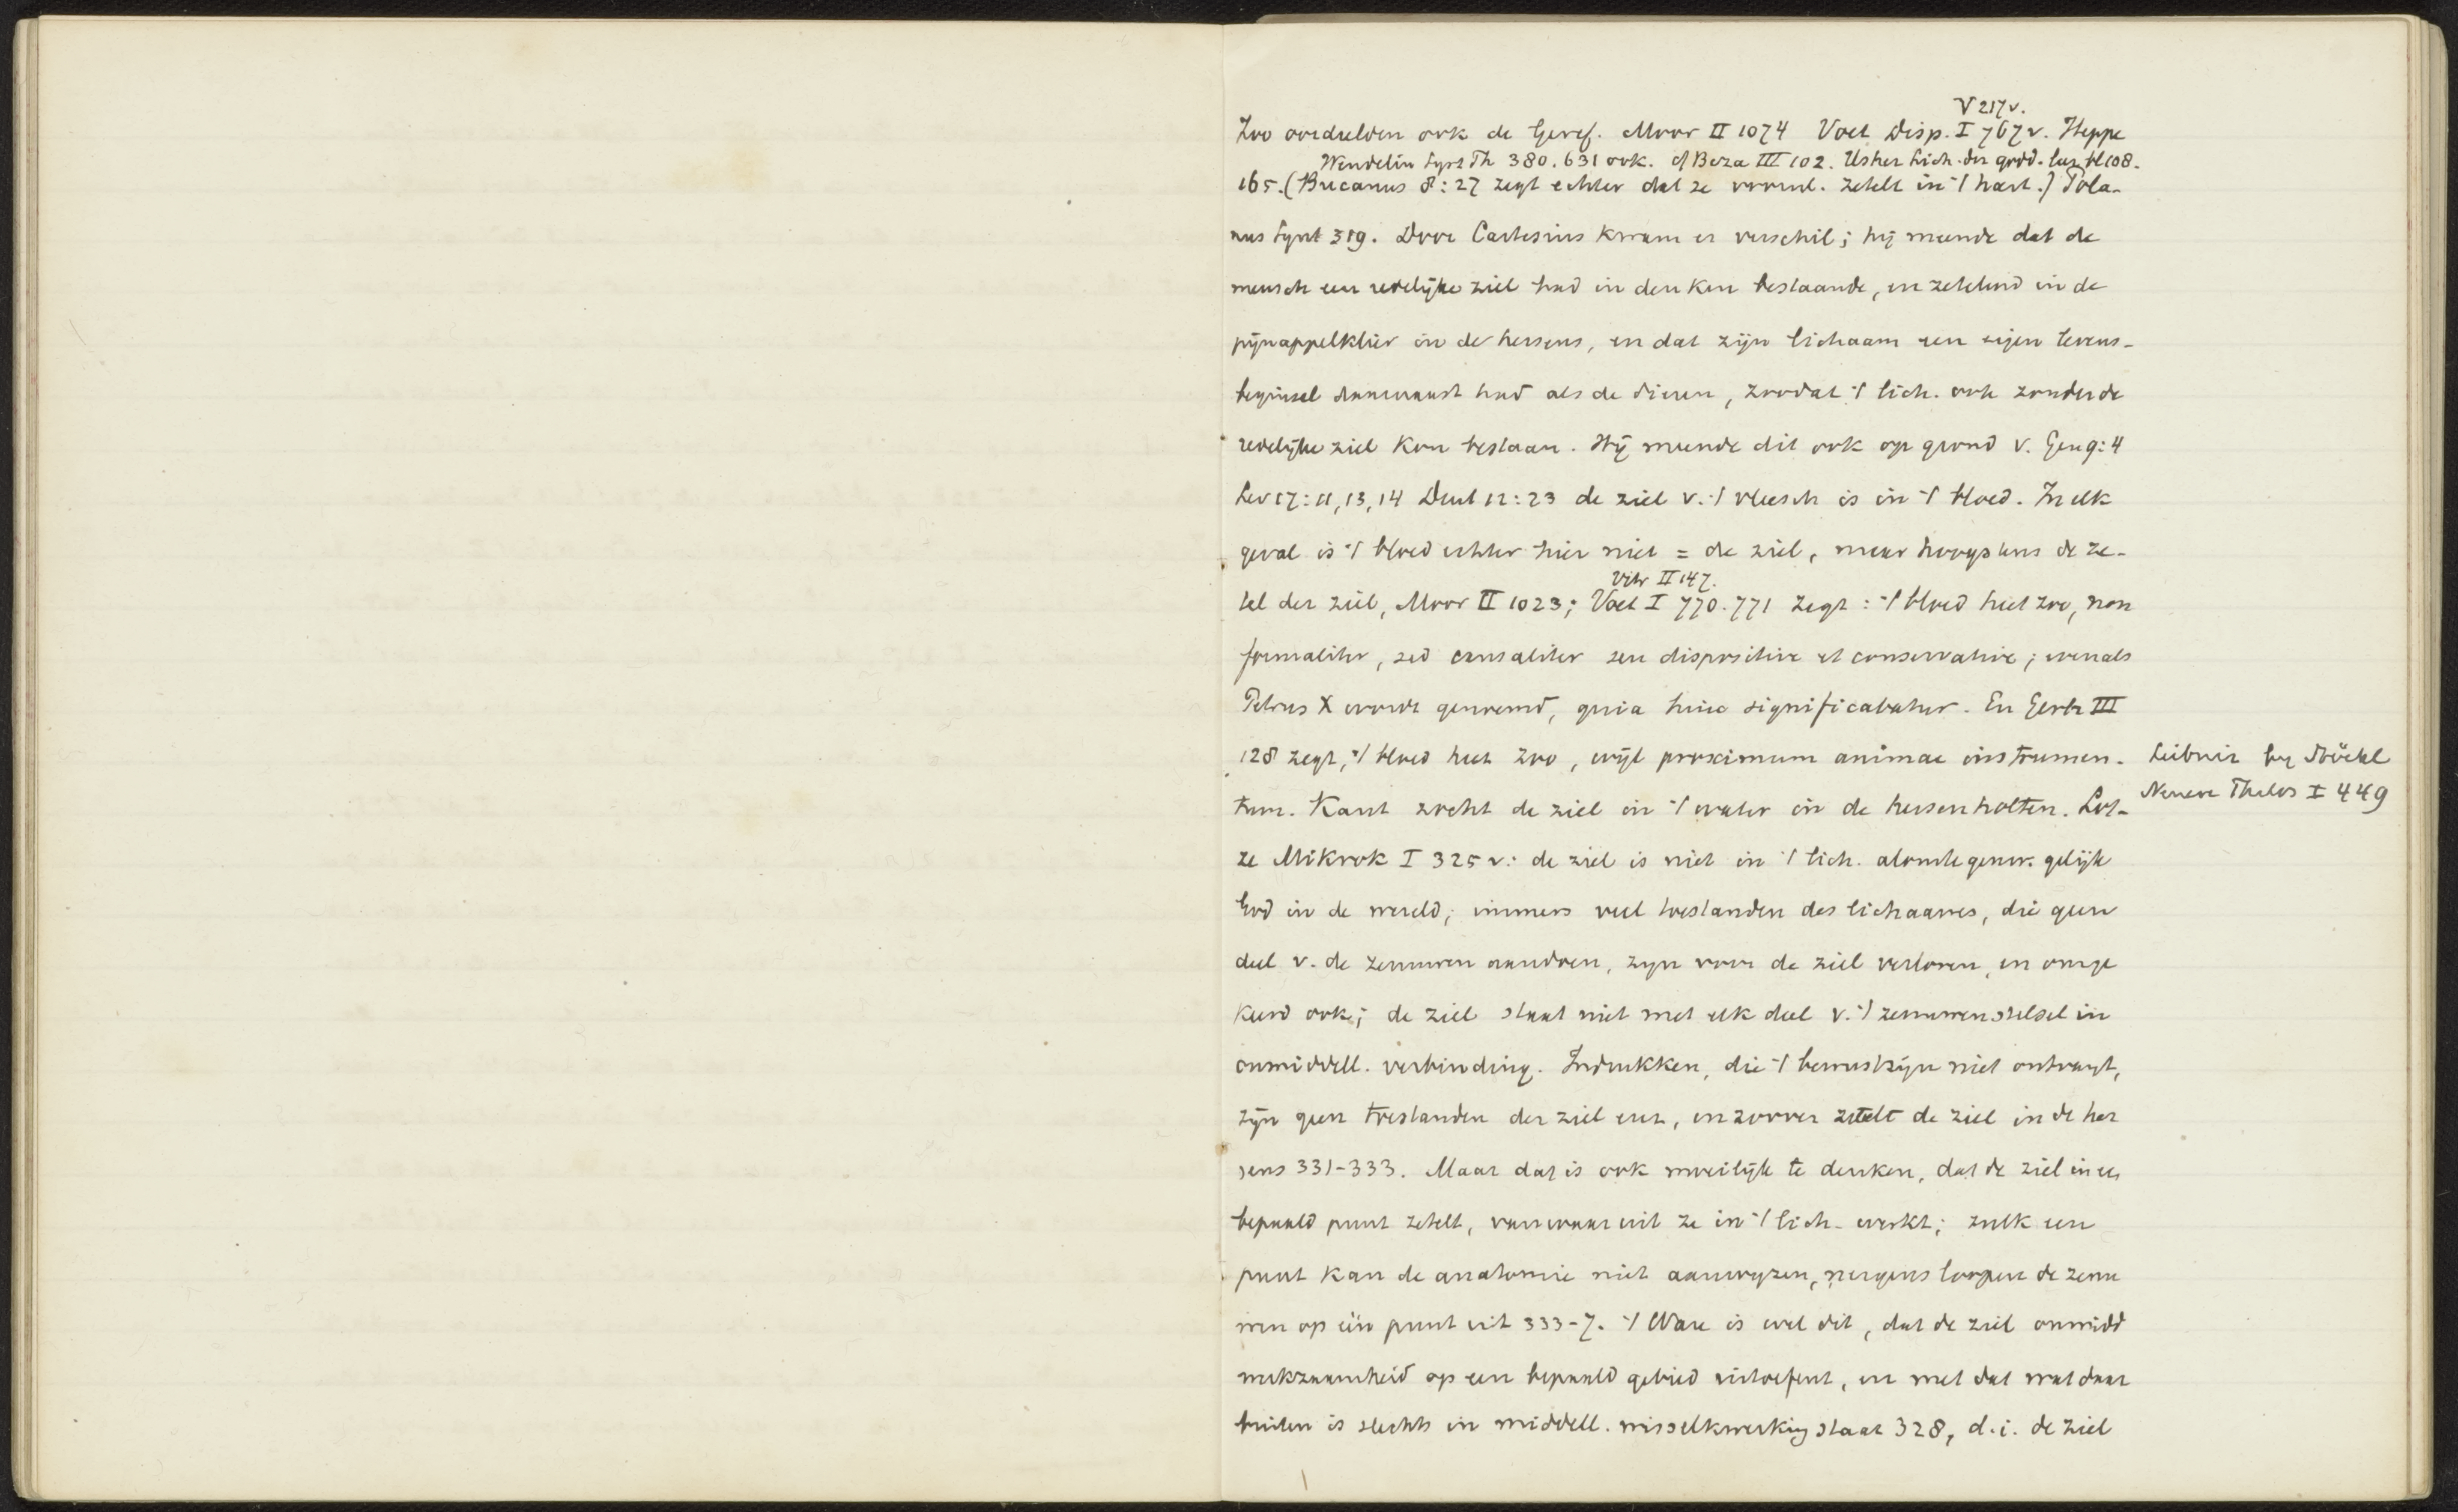 V 217 v.
Zoo oordeelden ook de Geref. Moor II 1074 Voet Disp. I 767 v. Heppe
Wendelin Syst Th 380. 631 ook. cf Beza III 102. Usher Lich. der godd. bl 108.
165. (Bucanus 8:27 zegt echter dat ze voornl. zetelt in 't hart.) Pola-
nus Synt 319. Door Cartesius kwam er verschil; hij meende dat de
mensch een redelijke ziel had in denken bestaande, en zetelend in de
pijnappelklier in de hersens, en dat zijn lichaam een eigen levens-
beginsel daarnaast had als de dieren, zoodat 't lich. ook zonder de
redelijke ziel kon bestaan. Hij meende dit ook op grond v. Gen 9:4
Lev 17:11, 13, 14 Deut 12:23 de ziel v. 't vleesch is in 't bloed. In elk
geval is 't bloed echter hier niet = de ziel, maar hoogstens de ze-
Vitr II 147.
tel der ziel, Moor II 1023; Voet I 770. 771 zegt: 't bloed heet zoo, non
formaliter, sed causaliter seu dispositive et conservative; evenals
Petrus X wordt genoemd, quia hunc significabatur. En Gerh III
128 zegt, 't bloed heet zoo, wijl proximum animae instrumen-
tum. Kant zocht de ziel in 't water in de hersenholten. Lot-
Leibniz by Stöckl
Neuere Thelos I 449
ze Mikrok I 325 v: de ziel is niet in 't lich. alomtegenw. gelijk
God in de wereld; immers veel toestanden des lichaams, die geen
deel v. de zenuwen aandoen, zyn voor de ziel verloren, en omge
keerd ook; de ziel staat niet met elk deel v. 't zenuwenstelsel in
onmiddell. verbinding. Indrukken, die 't bewustzijn niet ontvangt,
zijn geen toestanden der ziel enz, in zoover zetelt de ziel in de her
sens 331-333. Maar dat is ook moeilijk te denken, dat de ziel in een
bepaald punt zetelt, van waar uit ze in 't lich. werkt; zulk een
punt kan de anatomie niet aanwyzen, nergens loopen de zenu
wen op één punt uit 333-7. 't Ware is wel dit, dat de ziel onmidd
werkzaamheid op een bepaald gebied uitoefent, en met dat wat daar
buiten is slechts in middell. wisselkwerking staat 328, d.i. de ziel